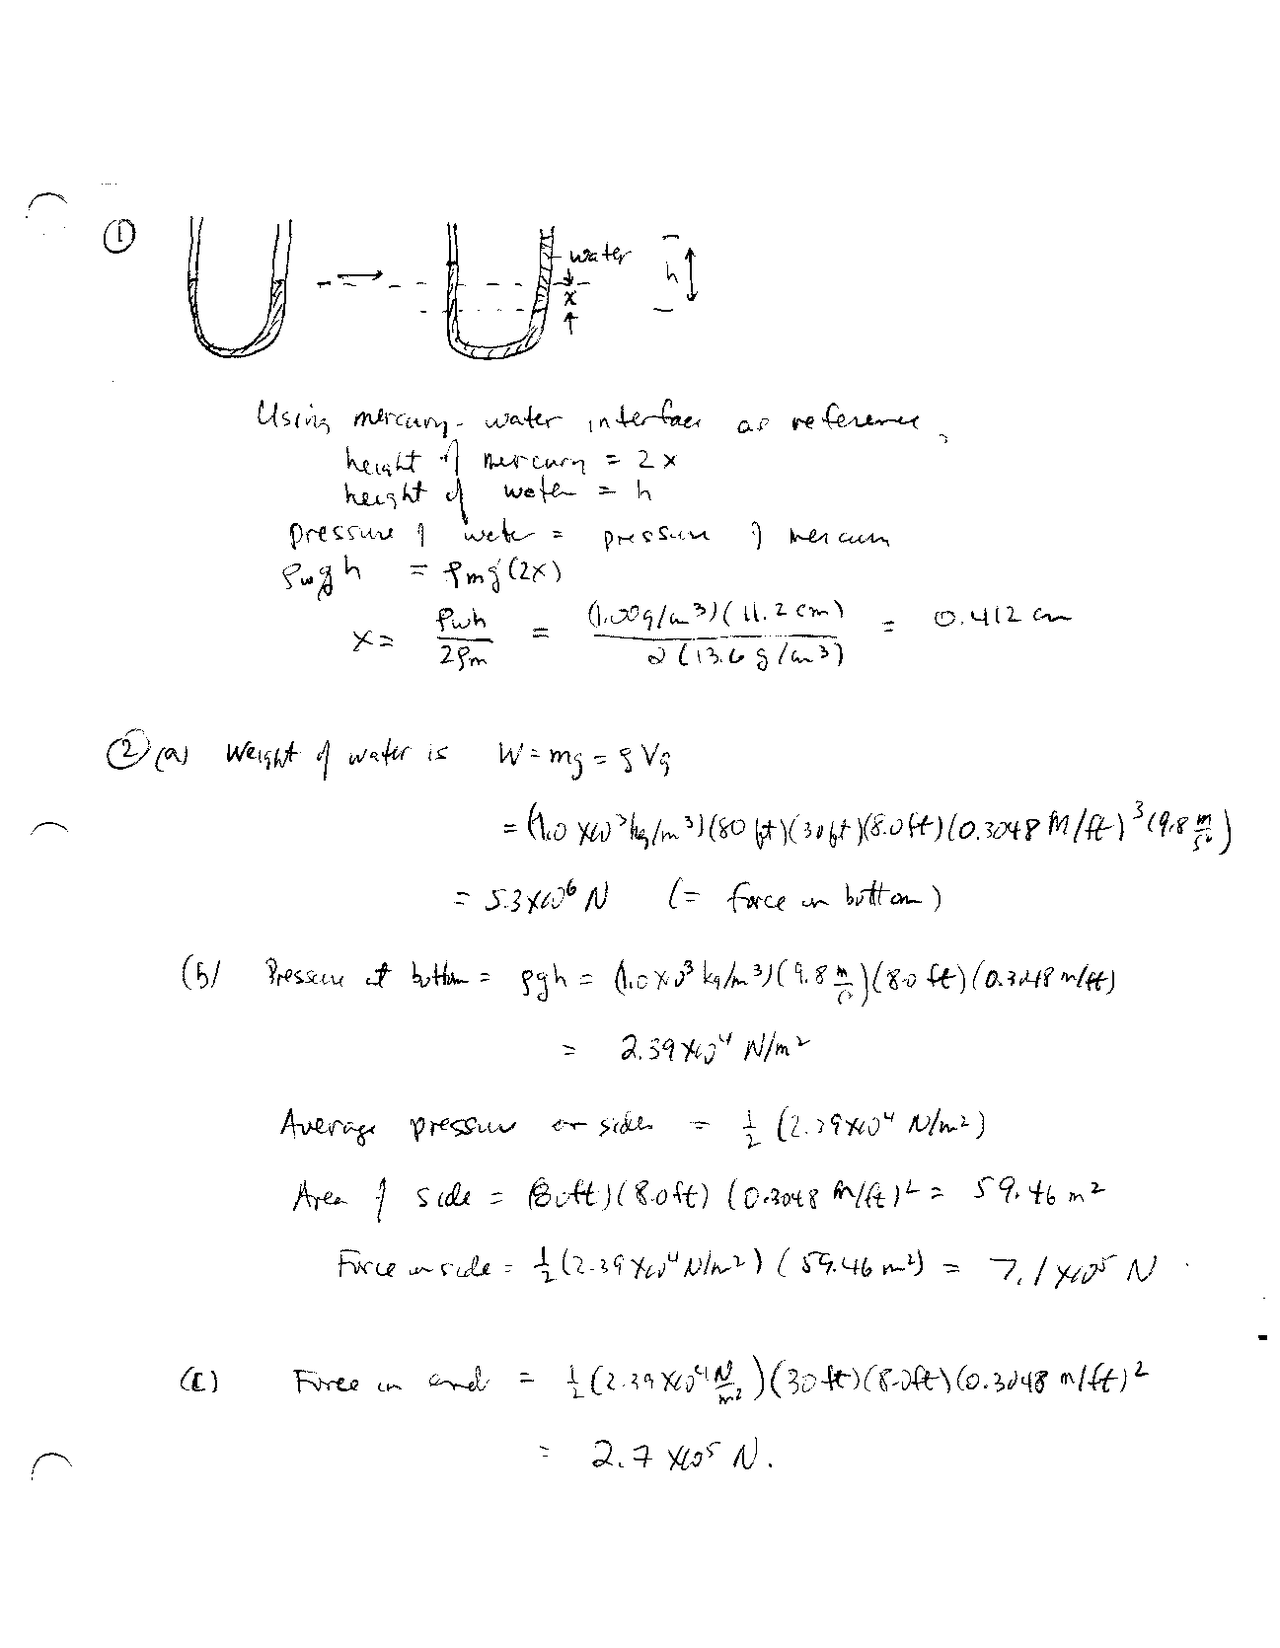 ①
water
x
h
Using mercury-water interface as reference,
height of mercury = 2x
height of water = h
pressure of water = pressure of mercury
ρwgh = ρmg(2x)
x = ρwh / 2ρm = (1.00g/cm³)(11.2cm) / 2(13.6g/cm³) = 0.412 cm
② (a) Weight of water is W = mg = ρVg
= (1.0×10³kg/m³)(80ft)(30ft)(8.0ft)(0.3048 m/ft)³(9.8 m/s²)
= 5.3×10⁶ N (= force on bottom)
(b) Pressure at bottom = ρgh = (1.0×10³ kg/m³)(9.8 m/s²)(8.0 ft)(0.3048 m/ft)
= 2.39×10⁴ N/m²
Average pressure on sides = ½ (2.39×10⁴ N/m²)
Area of side = (80ft)(8.0ft) (0.3048 m/ft)² = 59.46 m²
Force on side = ½ (2.39×10⁴ N/m²) (59.46 m²) = 7.1×10⁵ N
(c) Force on end = ½ (2.39×10⁴ N/m²)(30 ft)(8.0ft)(0.3048 m/ft)²
= 2.7×10⁵ N.